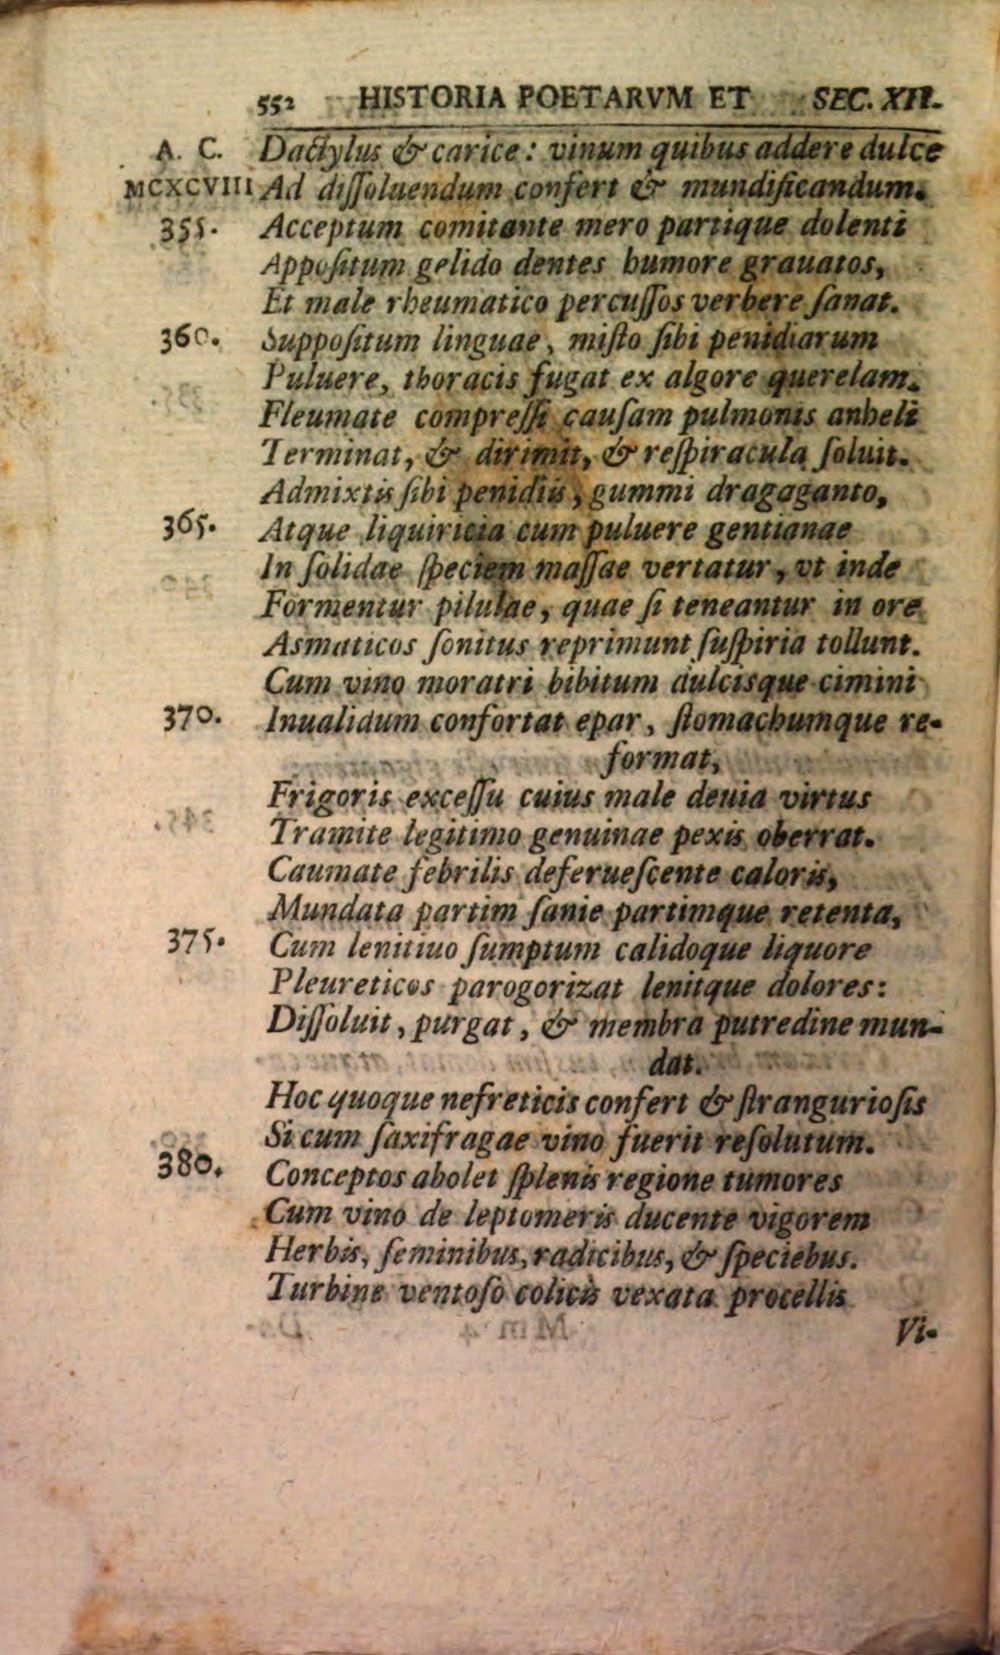 552 HISTORIA POETARVM ET SEC. XII.
A. C. Dactylus & carice: vinum quibus addere dulce
MCXCVIII Ad diſſoluendum confert & mundificandum.
355. Acceptum comitante mero partique dolenti
Appoſitum gelido dentes humore grauatos,
Et male rheumatico percuſſos verbere ſanat.
360. Suppoſitum linguae, miſto ſibi penidiarum
Puluere, thoracis fugat ex algore querelam.
Fleumate compreſſi cauſam pulmonis anheli
Terminat, & dirimit, & reſpiracula ſoluit.
Admixtis ſibi penidiis, gummi dragaganto,
365. Atque liquiricia cum puluere gentianae
In ſolidae ſpeciem maſſae vertatur, vt inde
Formentur pilulae, quae ſi teneantur in ore
Asmaticos ſonitus reprimunt ſuſpiria tollunt.
Cum vino moratri bibitum dulcisque cimini
370. Inualidum confortat epar, ſtomachumque re-
format,
Frigoris exceſſu cuius male deuia virtus
Tramite legitimo genuinae pexis oberrat.
Caumate febrilis deferueſcente caloris,
Mundata partim ſanie partimque retenta,
375. Cum lenitiuo ſumptum calidoque liquore
Pleureticos parogorizat lenitque dolores:
Diſſoluit, purgat, & membra putredine mun-
dat.
Hoc quoque nefreticis confert & ſtrangurioſis
Si cum ſaxifragae vino fuerit reſolutum.
380. Conceptos abolet ſplenis regione tumores
Cum vino de leptomeris ducente vigorem
Herbis, ſeminibus, radicibus, & ſpeciebus.
Turbine ventoſo colicis vexata procellis
Vi-